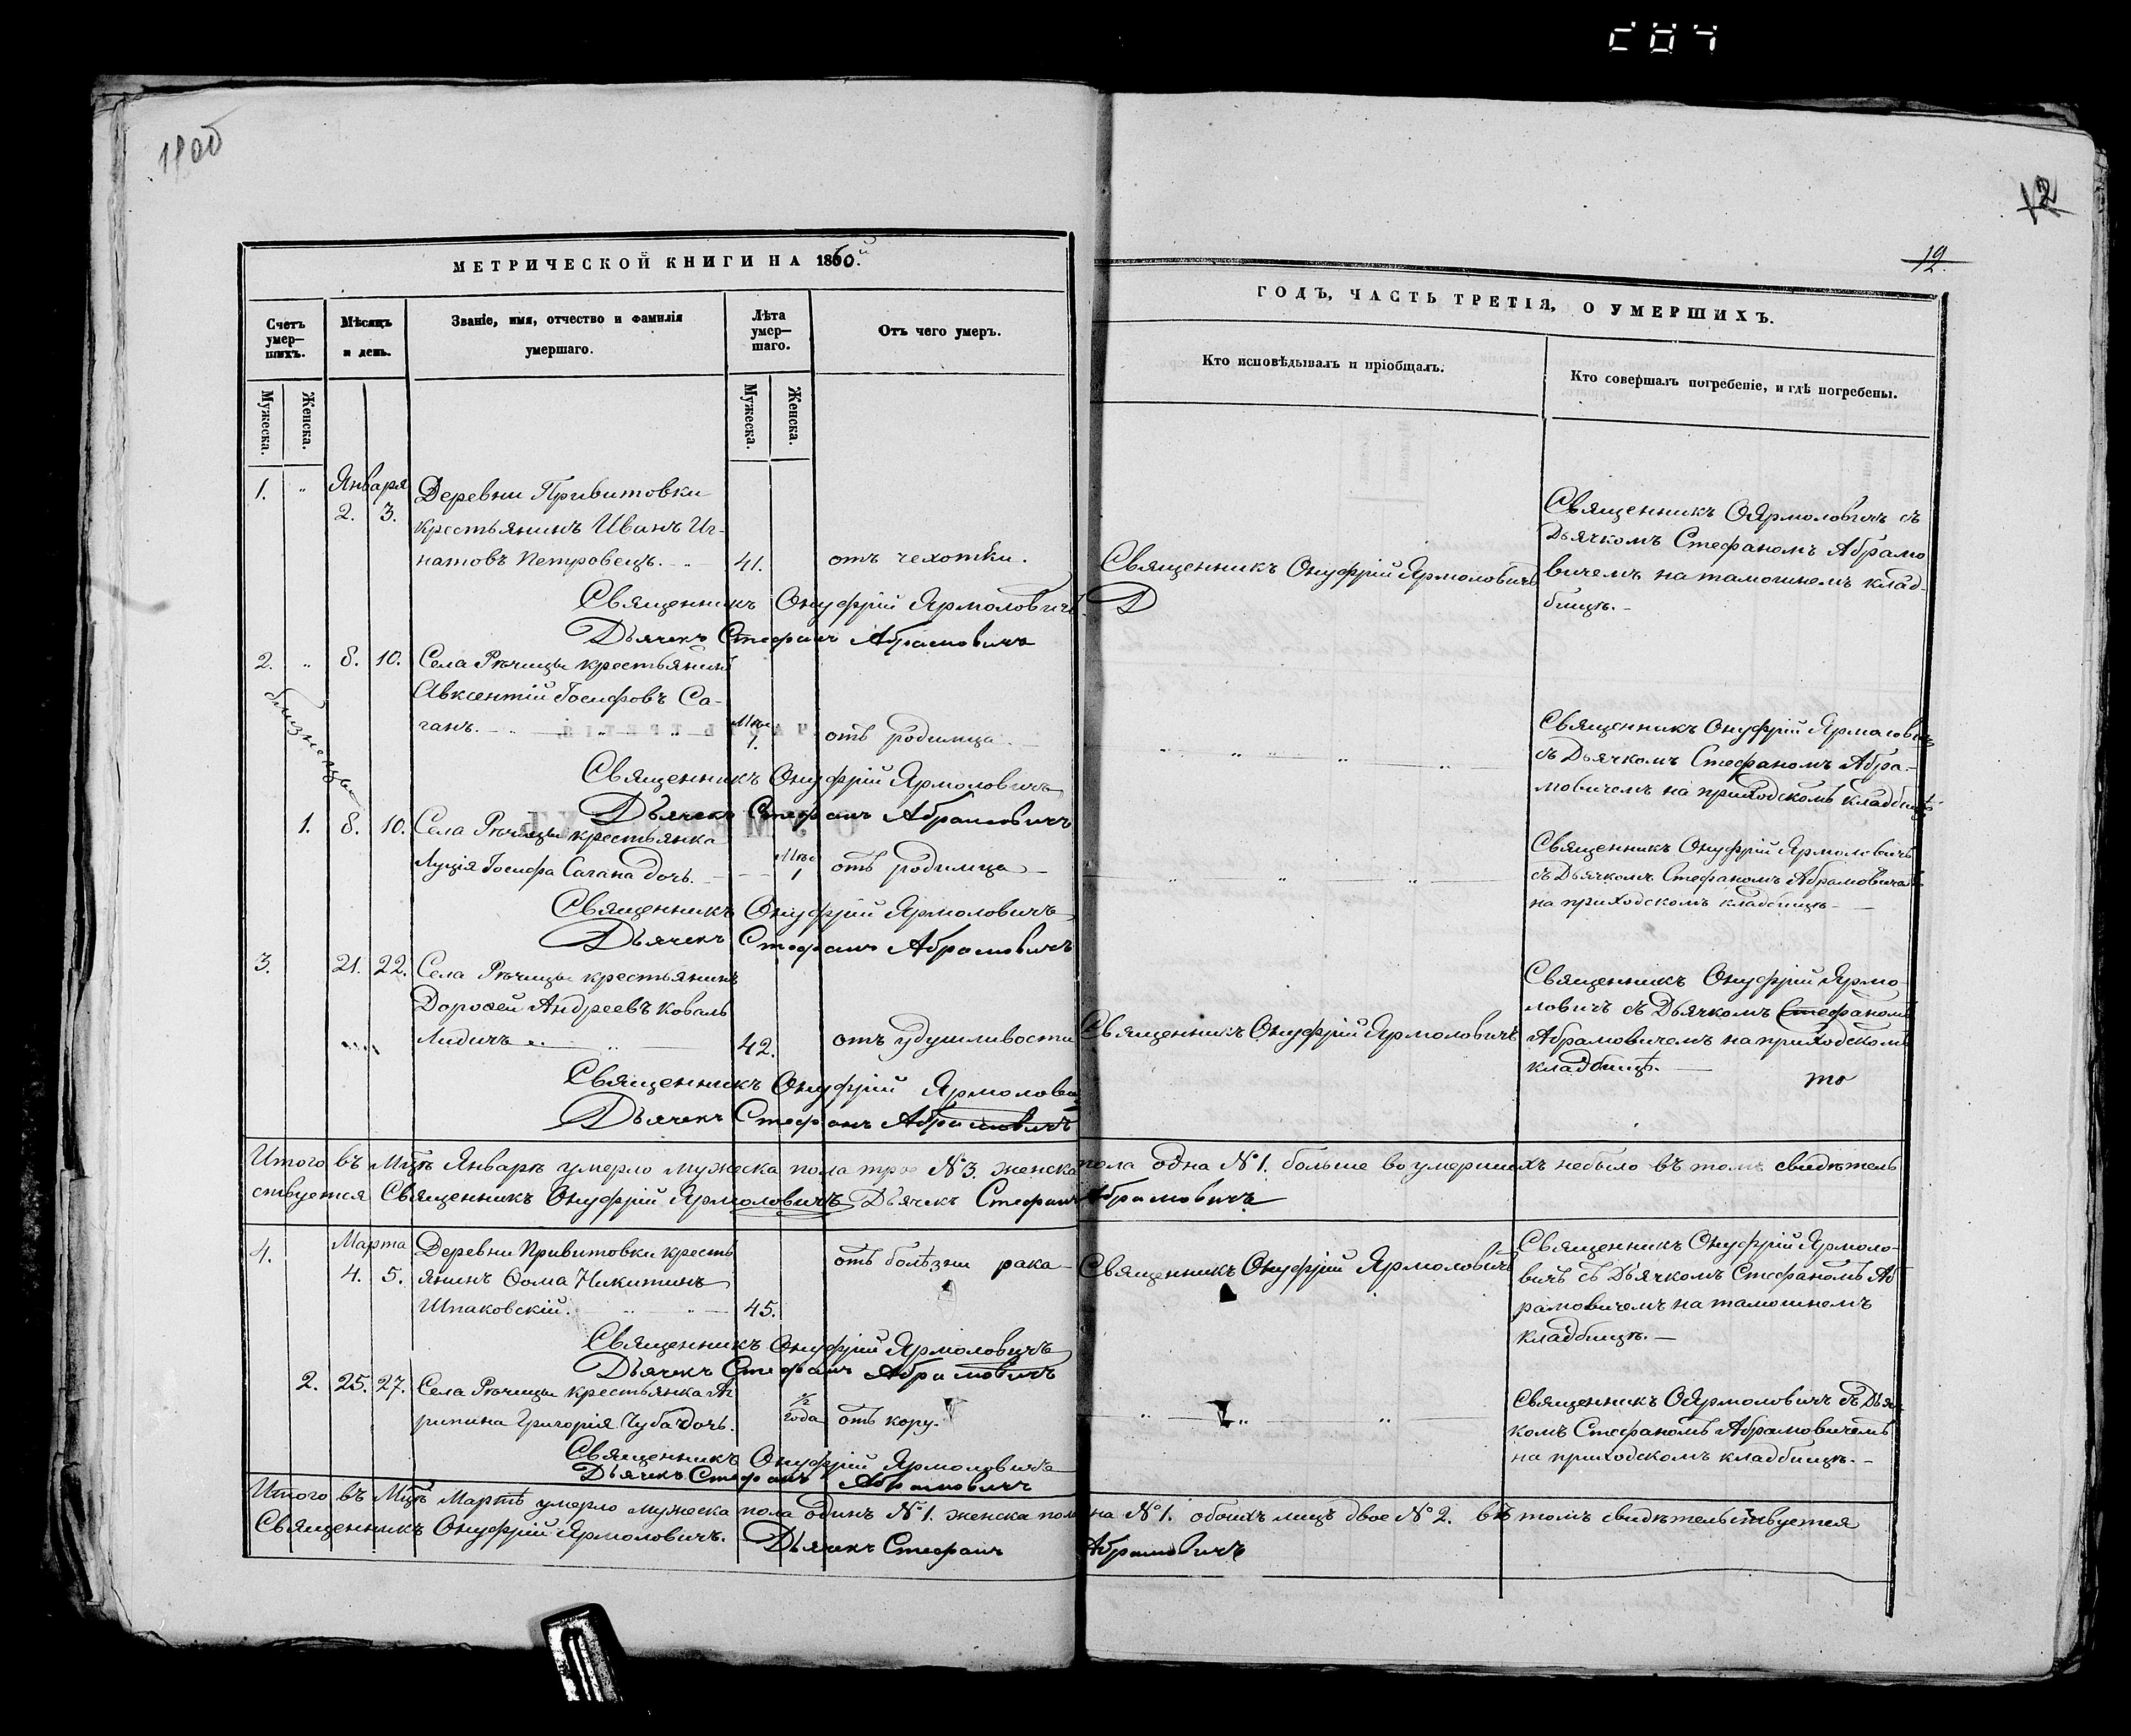 1860
12
12.
МЕТРИЧЕСКОЙ КНИГИ НА 1860.й
ГОДЪ, ЧАСТЬ ТРЕТІЯ, О УМЕРШИХЪ.
Счетъ умер-шихъ.
Мѣсяцъ и день.
Званіе, имя, отчество и фамилія умершаго.
Лѣта умер-шаго.
Отъ чего умеръ.
Кто исповѣдывалъ и пріобщалъ.
Кто совершалъ погребеніе, и гдѣ погребены.
Мужеска.
Женска.
Мужеска.
Женска.
1. " Января
2. 3.
Деревни Привитовки
крестьянинъ Иванъ Иг-
натовъ Петровецъ. 41. отъ чехотки.
Священникъ Онуфрій Ярмоловичъ
Священникъ ОЯрмоловичъ съ
Дьячкомъ Стефаномъ Абрамо
вичемъ на тамошнемъ клад-
бищѣ.
Священникъ Онуфрій Ярмоловичъ.
Д
Дьячекъ Стефанъ Абрамовичъ
2. " 8. 10. Села Рѣчицы крестьянинъ
Авксентій Іосифовъ Са-
ганъ. Мѣс 1. отъ родимца.
близнецы
Священникъ Онуфрій Ярмоловичъ
съ Дьячкомъ Стефаномъ Абра-
мовичемъ на приходскомъ кладбищѣ
Священникъ Онуфрій Ярмоловичъ
Дьячекъ Стефанъ Абрамовичъ
1. 8. 10. Села Рѣчицы крестьянка
Луція Іосифа Сагана дочь. Мѣс 1 отъ родимца
Священникъ Онуфрій Ярмоловичъ
съ Дьячкомъ Стефаномъ Абрамовичемъ
на приходскомъ кладбищѣ
Священникъ Онуфрій Ярмоловичъ
Дьячекъ Стефанъ Абрамовичъ
3. 21. 22. Села Рѣчицы крестьянинъ
Дороѳей Андреевъ коваль
Лидичъ 42. отъ удушливости
Священникъ Онуфрій Ярмоловичъ
Священникъ Онуфрій Ярмо-
ловичъ съ Дьячкомъ Стефаномъ
Абрамовичемъ на приходскомъ
кладбищѣ.
то
Священникъ Онуфрій Ярмолович
Дьячекъ Стефанъ Абрамовичъ
Итого въ Мцѣ Январѣ умерло мужеска пола трое №3. женска пола одна №1. больше во умершихъ небыло въ томъ свидѣтель
ствуется Священникъ Онуфрій Ярмоловичъ Дьячекъ Стефанъ Абрамовичъ
4. Марта
4. 5.
Деревни Привитовки кресть
янинъ Ѳома Никитинъ
Шпаковскій. 45. отъ болѣзни рака
Священникъ Онуфрій Ярмоловичъ
Священникъ Онуфрій Ярмоло-
вичъ съ Дьячкомъ Стефаномъ Аб
рамовичемъ на тамошнемъ
кладбищѣ.
Священникъ Онуфрій Ярмоловичъ
Дьячекъ Стефанъ Абрамовичъ
2. 25. 27. Села Рѣчицы крестьянка Аг
рипина Григорія Чуба дочь. ½ года отъ кору.
Священникъ ОЯрмоловичъ съ Дьяч
комъ Стефаномъ Абрамовичемъ
на приходскомъ кладбищѣ.
Священникъ Онуфрій Ярмоловичъ
Дьячекъ Стефанъ Абрамовичъ
Итого въ Мцѣ Мартѣ умерло мужеска пола одинъ №1. женска пола на №1. обоихъ лицъ двое №2. въ томъ свидѣтельствуется
Священникъ Онуфрій Ярмоловичъ. Дьячекъ Стефанъ Абрамовичъ